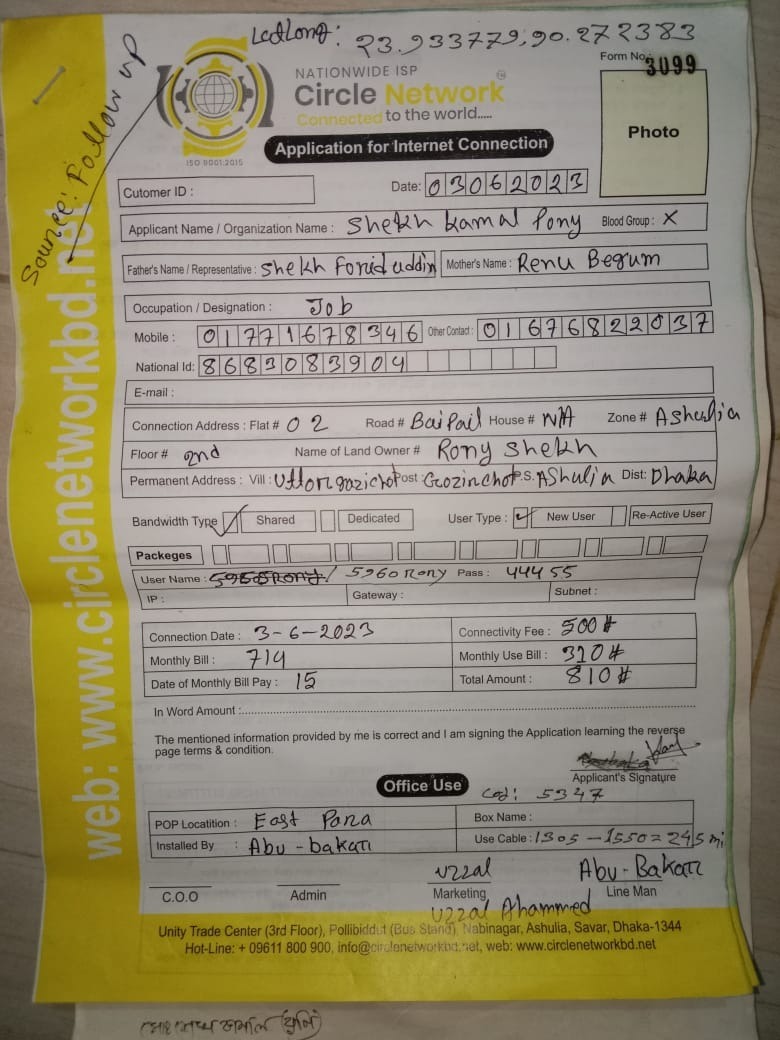 Lat Long: 23.933779, 90.272383
Source: Follow up
Form No: 3099
NATIONWIDE ISP
Circle Network
Connected to the world.....
ISO 9001:2015
Photo
Application for Internet Connection
Cutomer ID :
Date: 03062023
Applicant Name / Organization Name : Shekh kamal Pony Blood Group : X
Father's Name / Representative : Shekh Forid uddin Mother's Name : Renu Begum
Occupation / Designation : Job
Mobile : 01771678346 Other Contact : 01676822037
National Id: 8683083904
E-mail :
Connection Address : Flat # 02 Road # Baipail House # N/A Zone # Ashulia
Floor # 2nd Name of Land Owner # Rony Shekh
Permanent Address : Vill : Uttorgazichot Post : Gozinchot P.S. AShulia Dist: Dhaka
Bandwidth Type Shared Dedicated User Type : New User Re-Active User
Packeges
User Name : 5960Rony / 5960 Rony Pass : 44455
IP : Gateway : Subnet :
Connection Date : 3-6-2023 Connectivity Fee : 500#
Monthly Bill : 714 Monthly Use Bill : 310#
Date of Monthly Bill Pay : 15 Total Amount : 810#
In Word Amount :
The mentioned information provided by me is correct and I am signing the Application learning the reverse
page terms & condition.
Applicant's Signature
Office Use
Cod: 5347
POP Locatition : East Para Box Name :
Installed By : Abu-bakar Use Cable : 1305 - 1550 = 245 mi
Uzzal Abu-Bakar
C.O.O Admin Marketing Line Man
Uzzal Ahammed
Unity Trade Center (3rd Floor), Pollibiddut (Bus Stand), Nabinagar, Ashulia, Savar, Dhaka-1344
Hot-Line: + 09611 800 900, info@circlenetworkbd.net, web: www.circlenetworkbd.net
web: www.circlenetworkbd.net